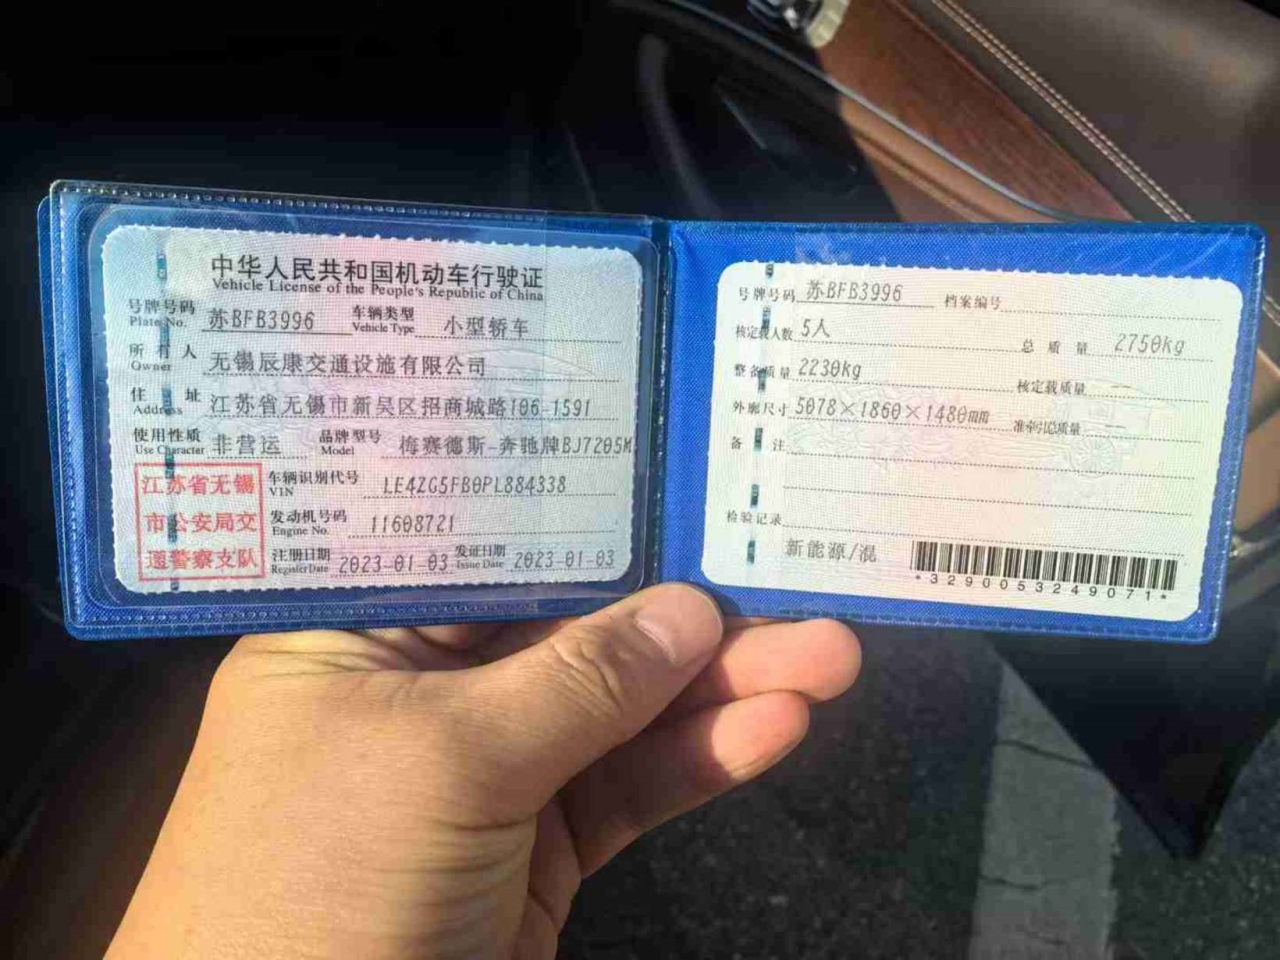 中华人民共和国机动车行驶证
Vehicle License of the People's Republic of China
号牌号码 Plate No. 苏BFB3996 车辆类型 Vehicle Type 小型轿车
所有人 Owner 无锡辰康交通设施有限公司
住址 Address 江苏省无锡市新吴区招商城路106-1591
使用性质 Use Character 非营运 品牌型号 Model 梅赛德斯-奔驰牌BJ7205M
江苏省无锡
市公安局交
通警察支队
车辆识别代号 VIN LE4ZG5FB0PL884338
发动机号码 Engine No. 11608721
注册日期 Register Date 2023-01-03 发证日期 Issue Date 2023-01-03
号牌号码 苏BFB3996 档案编号
核定载人数 5人 总质量 2750kg
整备质量 2230kg 核定载质量 --
外廓尺寸 5078×1860×1480mm 准牵引总质量 --
备注
检验记录
新能源/混
*3290053249071*